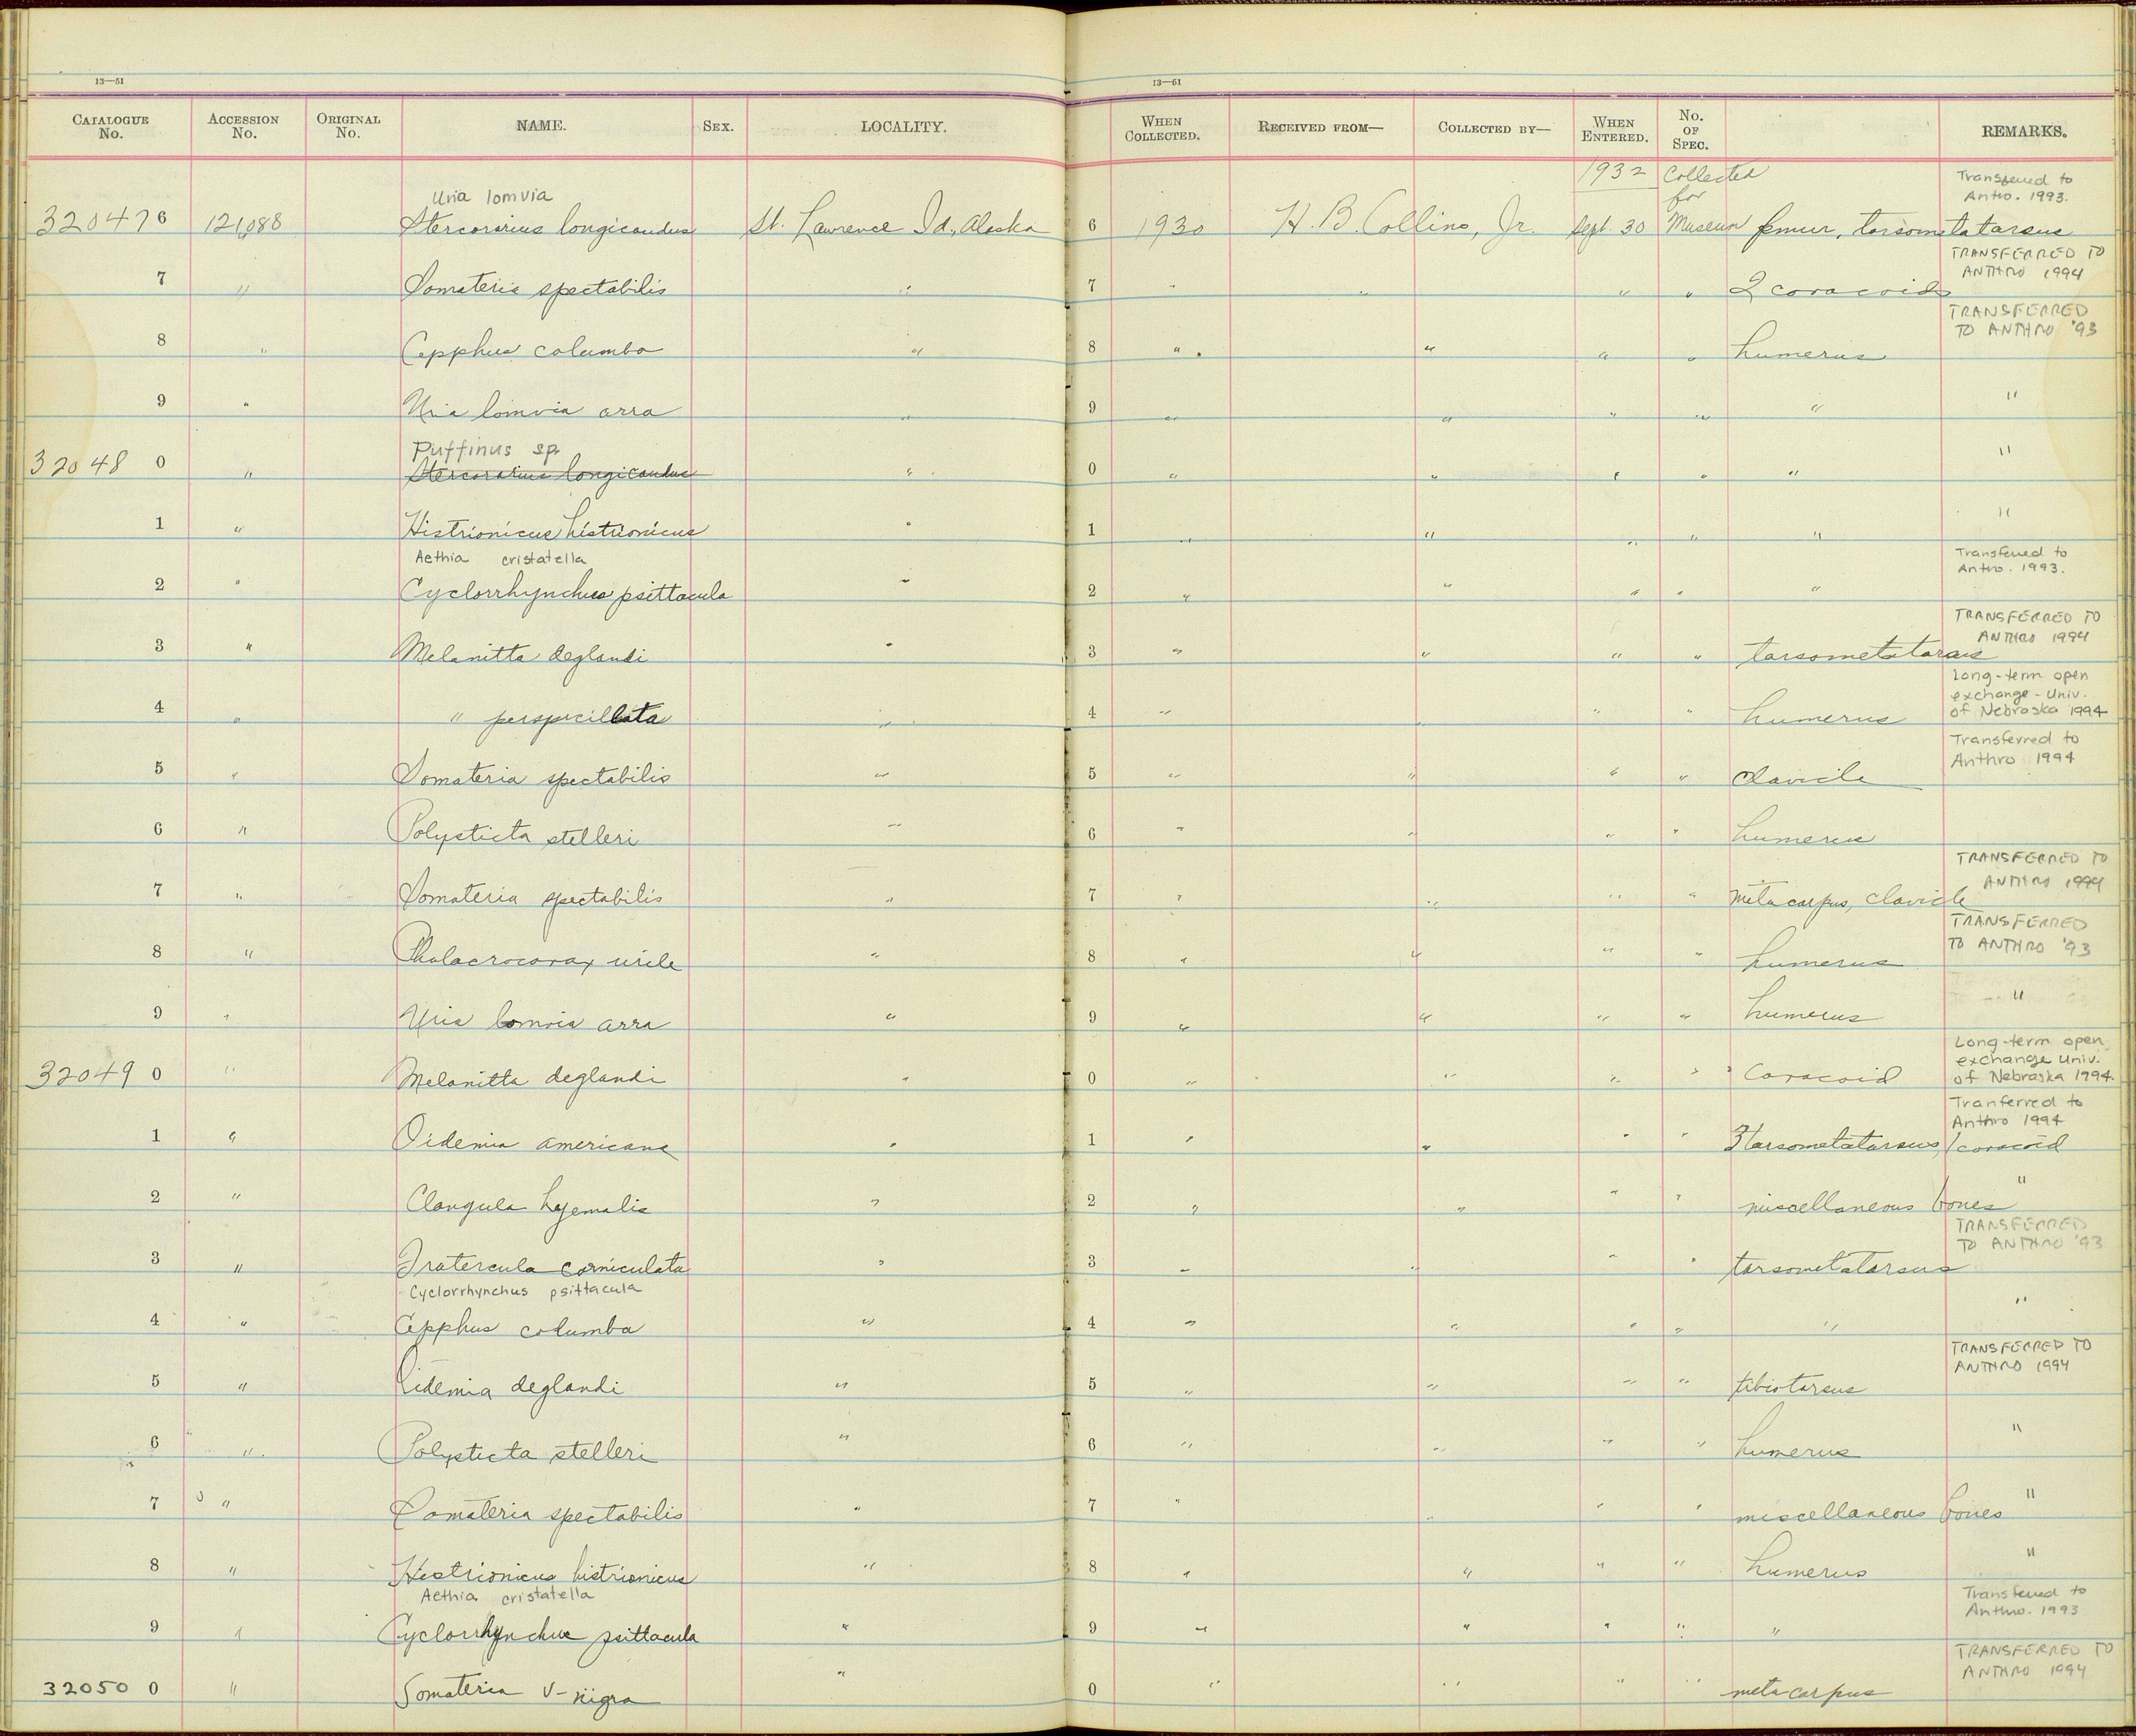 13—51
13—61
CATALOGUE No. ACCESSION No. ORIGINAL No. NAME. SEX. LOCALITY. WHEN COLLECTED. RECEIVED FROM— COLLECTED BY— WHEN ENTERED. No. OF SPEC. REMARKS.
1932 Collected for Transferred to Anthro. 1993.
Uria lomvia
320476 121,088 Stercorarius longicaudus St. Lawrence Id., Alaska 6 1930 H. B. Collins, Jr. Sept. 30 Museum femur, tarsometatarsus
TRANSFERRED TO ANTHRO 1994
7 " Somateria spectabilis " 7 " " " " 2 coracoids
TRANSFERRED TO ANTHRO '93
8 " Cepphus columba " 8 " " " " humerus
9 " Uria lomvia arra " 9 " " " " " "
Puffinus sp.
32048 0 " Stercorarius longicaudus " 0 " " " " " "
1 " Histrionicus histrionicus " 1 " " " " " "
Aethia cristatella Transferred to Anthro. 1993.
2 " Cyclorrhynchus psittacula " 2 " " " " "
TRANSFERRED TO ANTHRO 1994
3 " Melanitta deglandi " 3 " " " " tarsometatarsus
Long-term open exchange - Univ. of Nebraska 1994
4 " " perspicillata " 4 " " " " humerus
Transferred to Anthro 1994
5 " Somateria spectabilis " 5 " " " " clavicle
6 " Polysticta stelleri " 6 " " " " humerus
TRANSFERRED TO ANTHRO 1994
7 " Somateria spectabilis " 7 " " " " metacarpus, clavicle
TRANSFERRED TO ANTHRO '93
8 " Phalacrocorax urile " 8 " " " " humerus
9 " Uria lomvia arra " 9 " " " " humerus "
Long-term open exchange Univ. of Nebraska 1994.
32049 0 " Melanitta deglandi " 0 " " " " coracoid
Tranferred to Anthro 1994
1 " Oidemia americana " 1 " " " " 3 tarsometatarsus, 1 coracoid
2 " Clangula hyemalis " 2 " " " " miscellaneous bones "
TRANSFERRED TO ANTHRO '93
3 " Fratercula corniculata " 3 " " " " tarsometatarsus
Cyclorrhynchus psittacula
4 " Cepphus columba " 4 " " " " " "
TRANSFERRED TO ANTHRO 1994
5 " Oidemia deglandi " 5 " " " " tibiotarsus
6 " Polysticta stelleri " 6 " " " " humerus "
7 " Somateria spectabilis " 7 " " " " miscellaneous bones "
8 " Histrionicus histrionicus " 8 " " " " humerus "
Aethia cristatella Transferred to Anthro. 1993
9 " Cyclorrhynchus psittacula " 9 " " " " "
TRANSFERRED TO ANTHRO 1994
32050 0 " Somateria v-nigra " 0 " " " " metacarpus